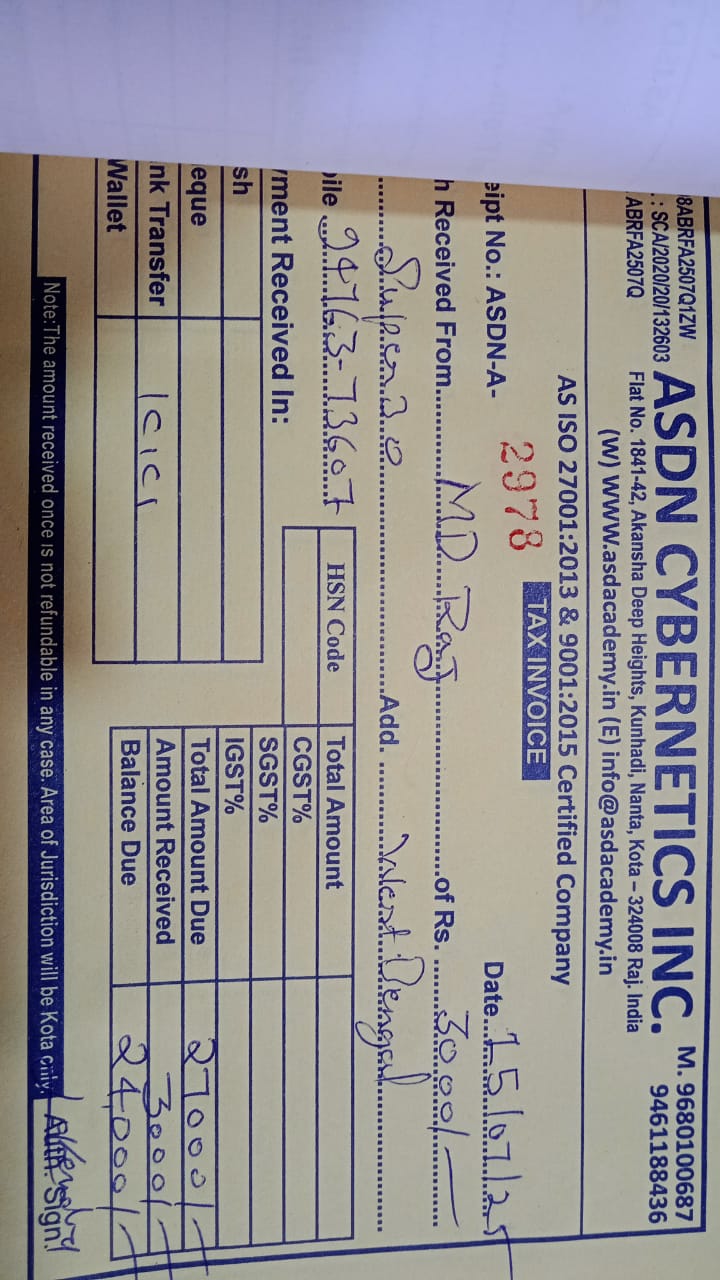 8ABRFA2507Q1ZW
.: SCA/2020/20/132603
ABRFA2507Q
ASDN CYBERNETICS INC.
M. 9680100687
9461188436
Flat No. 1841-42, Akansha Deep Heights, Kunhadi, Nanta, Kota – 324008 Raj. India
(W) WWW.asdacademy.in (E) info@asdacademy.in
AS ISO 27001:2013 & 9001:2015 Certified Company
TAX INVOICE
eipt No.: ASDN-A- 2978
Date 15/07/25
h Received From MD Raj of Rs. 3000/-
Add.
ile 94763-73607
yment Received In:
sh
eque
nk Transfer ICICI
Wallet
HSN Code
Total Amount
CGST%
SGST%
IGST%
Total Amount Due 27000/-
Amount Received 3000/-
Balance Due 24000/-
Note:The amount received once is not refundable in any case. Area of Jurisdiction will be Kota only.
Auth. Sign.